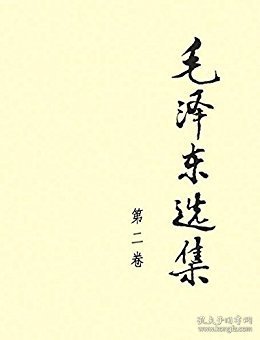 毛泽东选集
第二卷
孔夫子旧书网